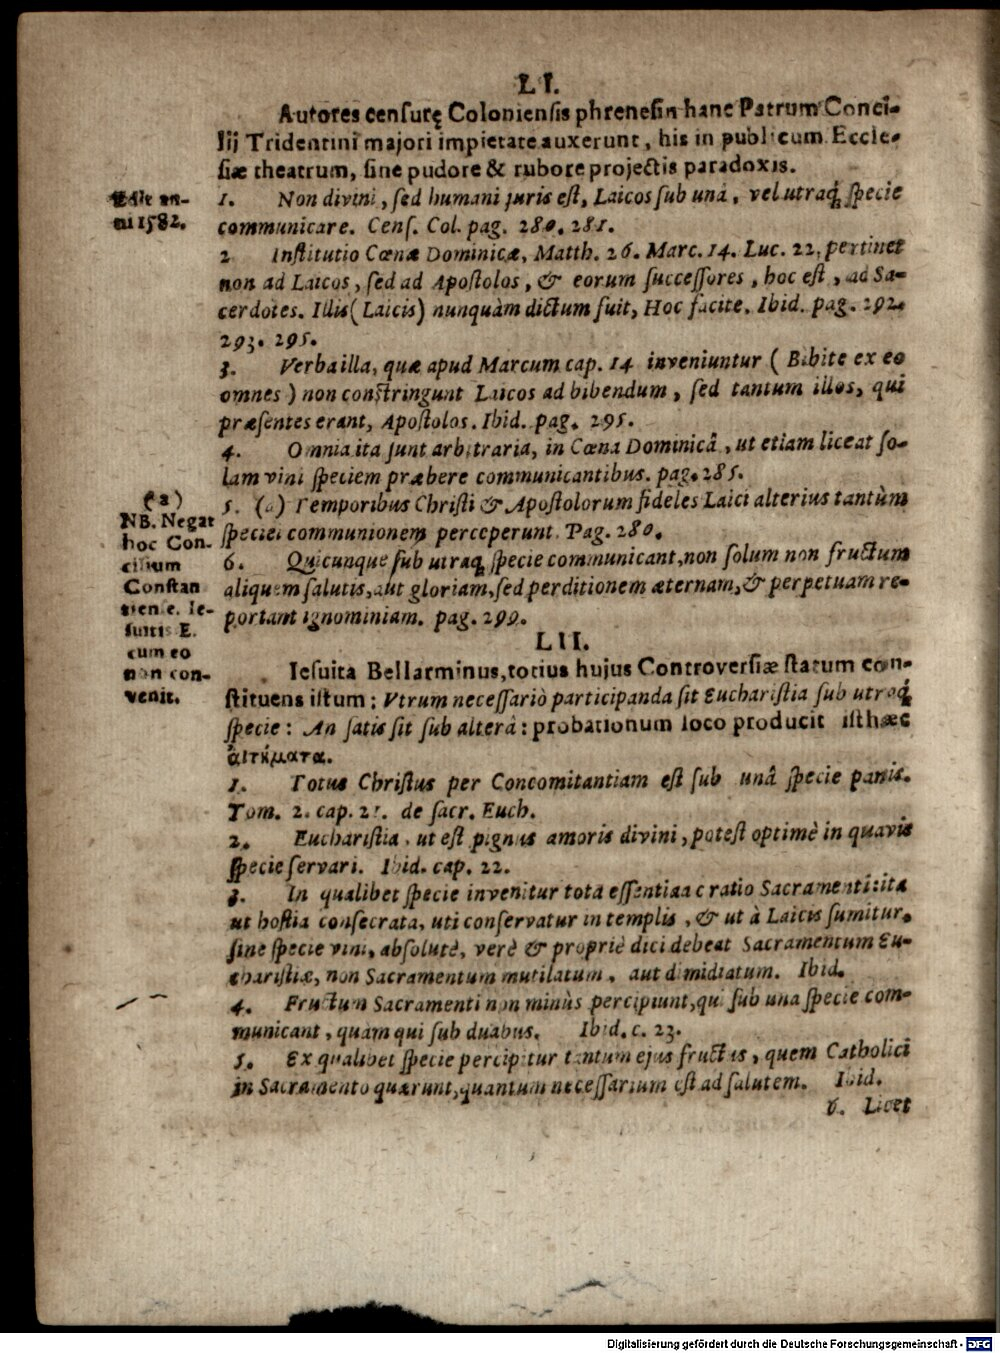 LI.
Autores censurę Coloniensis phrenesin hanc Patrum Conci-
lij Tridentini majori impietate auxerunt, his in publicum Eccle-
siæ theatrum, sine pudore & rubore projectis paradoxis.
Edit. an-
ni 1582.
1. Non divini, sed humani juris est, Laicos sub unâ, vel utraq; specie
communicare. Cens. Col. pag. 280. 281.
2 Institutio Cœnæ Dominicæ, Matth. 26. Marc. 14. Luc. 22. pertinet
non ad Laicos, sed ad Apostolos, & eorum successores, hoc est, ad Sa-
cerdotes. Illis (Laicis) nunquàm dictum fuit, Hoc facite. Ibid. pag. 292.
293. 295.
3. Verba illa, quæ apud Marcum cap. 14 inveniuntur (Bibite ex eo
omnes) non constringunt Laicos ad bibendum, sed tantum illos, qui
præsentes erant, Apostolos. Ibid. pag. 295.
4. Omnia ita sunt arbitraria, in Cœna Dominicâ, ut etiam liceat so-
lam vini speciem præbere communicantibus. pag. 285.
(a)
NB. Negat
hoc Con-
cilium
Constan
tiense. Ie-
suitis E.
cum eo
non con-
venit.
5. (a) Temporibus Christi & Apostolorum fideles Laici alterius tantùm
speciei communionem perceperunt. Pag. 280.
6. Quicunque sub utraq; specie communicant, non solum non fructum
aliquem salutis, aut gloriam, sed perditionem æternam, & perpetuam re-
portant ignominiam. pag. 299.
LII.
Iesuita Bellarminus, totius hujus Controversiæ statum con-
stituens istum: Vtrum necessariò participanda sit Eucharistia sub utraq;
specie: An satis sit sub alterâ: probationum loco producit isthæc
ἀιτήματα.
1. Totus Christus per Concomitantiam est sub unâ specie panis.
Tom. 2. cap. 21. de sacr. Euch.
2. Eucharistia, ut est pignus amoris divini, potest optimè in quavis
specie servari. Ibid. cap. 22.
3. In qualibet specie invenitur tota essentia ac ratio Sacramenti: ita
ut hostia consecrata, uti conservatur in templis, & ut à Laicis sumitur,
sine specie vini, absolutè, verè & propriè dici debeat Sacramentum Eu-
charistiæ, non Sacramentum mutilatum, aut dimidiatum. Ibid.
4. Fructum Sacramenti non minùs percipiunt, qui sub una specie com-
municant, quàm qui sub duabus. Ibid. c. 23.
5. Ex qualibet specie percipitur tantum ejus fructus, quem Catholici
in Sacramento quærunt, quantum necessarium est ad salutem. Ibid.
6. Licet
Digitalisierung gefördert durch die Deutsche Forschungsgemeinschaft - DFG